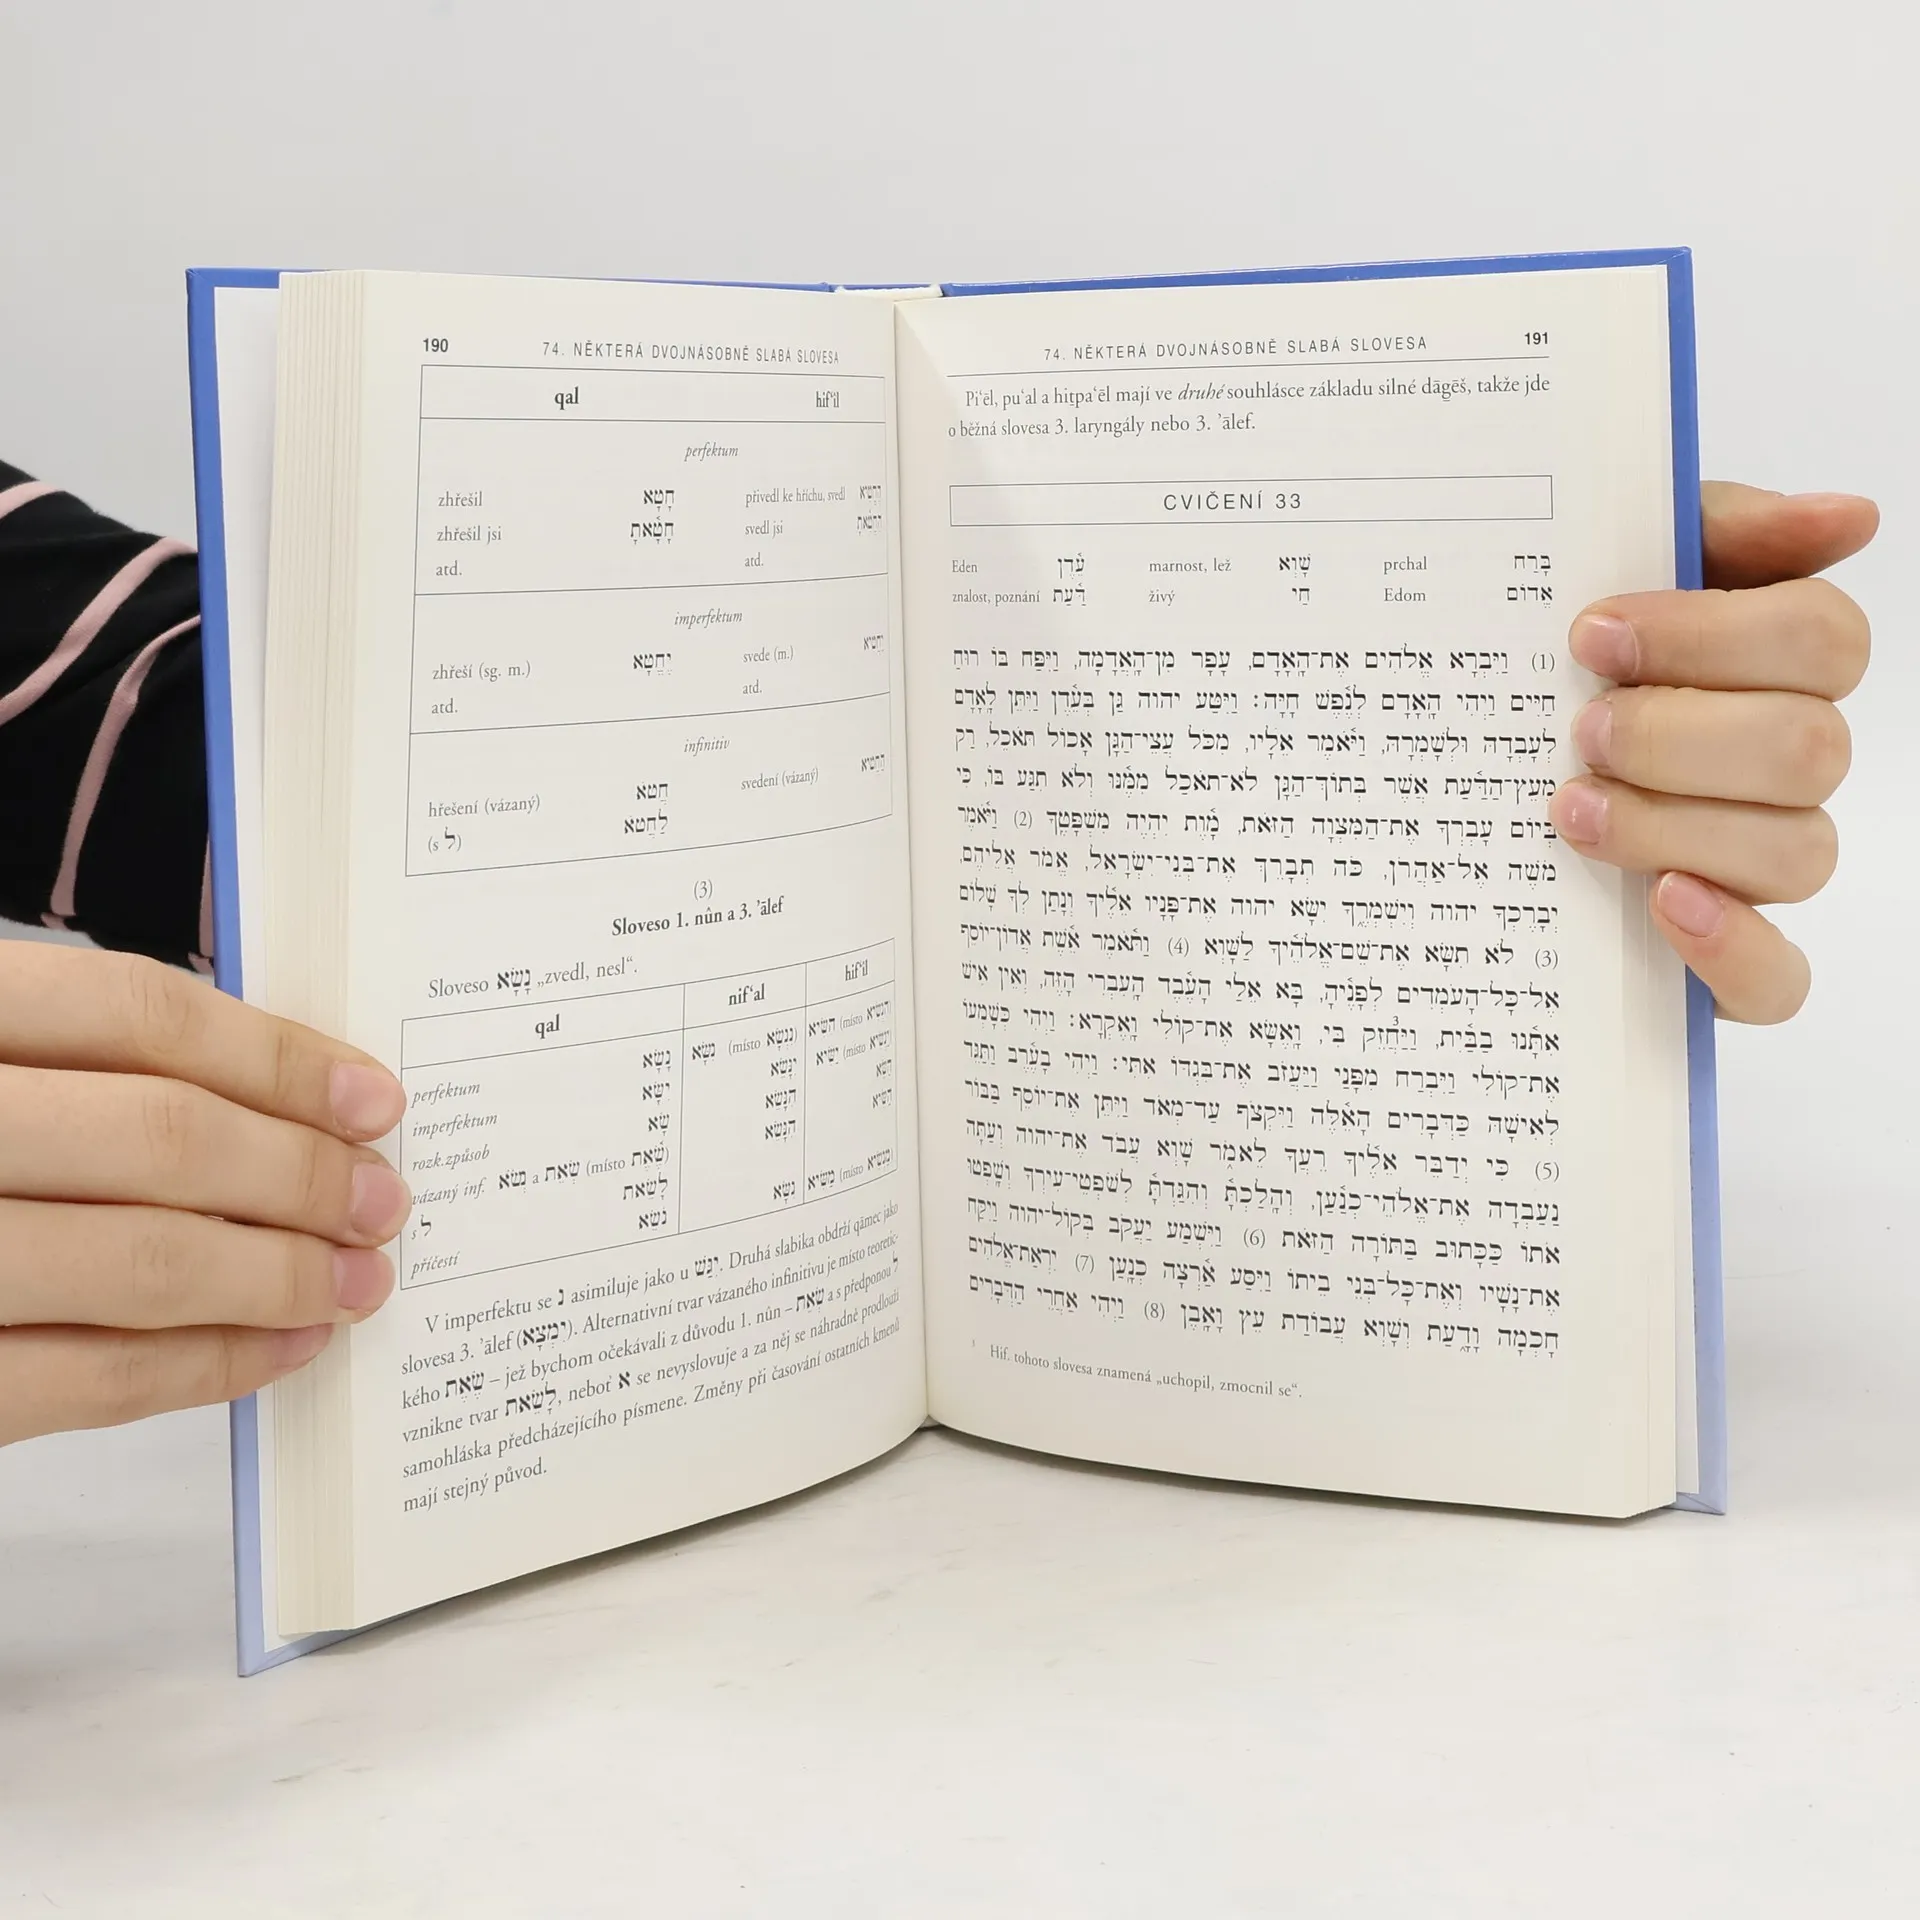 190 74. NĚKTERÁ DVOJNÁSOBNĚ SLABÁ SLOVESA
qal hif‘il
perfektum
zhřešil חָטָא přivedl ke hříchu, svedl
zhřešil jsi חָטָ֫אתָ svedl jsi
atd. atd.
imperfektum
zhřeší (sg. m.) יֶחֱטָא svede (m.)
atd. atd.
infinitiv
hřešení (vázaný) חֲטֹא svedení (vázaný)
(s לְ) לַחֲטֹא
(3)
Sloveso 1. nûn a 3. ’ālef
Sloveso נָשָׂא „zvedl, nesl“.
qal nif‘al hif‘il
perfektum נָשָׂא נִשָּׂא (místo נִנְשָׂא) הִשִּׂיא (místo הִנְשִׂיא)
imperfektum יִשָּׂא יִנָּשֵׂא יַשִּׂיא (místo יַנְשִׂיא)
rozk.způsob שָׂא הִנָּשֵׂא
vázaný inf. נְשֹׂא a שְׂאֵת (místo שֶׂ֫אֶת) הִנָּשֵׂא
s לְ לָשֵׂאת
příčestí נֹשֵׂא נִשָּׂא מַשִּׂיא (místo מַנְשִׂיא)
V imperfektu se נ asimiluje jako u יִגַּשׁ. Druhá slabika obdrží qāmec jako
slovesa 3. ’ālef (יִמְצָא). Alternativní tvar vázaného infinitivu je místo teoretic-
kého שֶׂ֫אֶת – jež bychom očekávali z důvodu 1. nûn – שְׂאֵת a s předponou לְ
vznikne tvar לָשֵׂאת, neboť א se nevyslovuje a za něj se náhradně prodlouží
samohláska předcházejícího písmene. Změny při časování ostatních kmenů
mají stejný původ.
74. NĚKTERÁ DVOJNÁSOBNĚ SLABÁ SLOVESA 191
Pi‘ēl, pu‘al a hiṯpa‘ēl mají ve druhé souhlásce základu silné dāḡēš, takže jde
o běžná slovesa 3. laryngály nebo 3. ’ālef.
CVIČENÍ 33
Eden עֵ֫דֶן marnost, lež שָׁוְא prchal בָּרַח
znalost, poznání דַּ֫עַת živý חַי Edom אֱדוֹם
(1) וַיִּבְרָא אֱלֹהִים אֶת־הָאָדָם, עָפָר מִן־הָאֲדָמָה, וַיִּפַּח בּוֹ רוּחַ
חַיִּים וַיְהִי הָאָדָם לְנֶ֫פֶשׁ חַיָּה: וַיִּטַּע יהוה גַּן בְּעֵ֫דֶן וַיִּתֵּן לָאָדָם
לְעָבְדָהּ וּלְשָׁמְרָהּ, וַיֹּ֫אמֶר אֵלָיו, מִכֹּל עֲצֵי־הַגָּן אָכוֹל תֹּאכֵל, רַק
מֵעֵץ־הַדַּ֫עַת אֲשֶׁר בְּתוֹךְ־הַגָּן לֹא־תֹאכַל מִמֶּ֫נּוּ וְלֹא תִגַּע בּוֹ, כִּי
בְּיוֹם עָבְרְךָ אֶת־הַמִּצְוָה הַזֹּאת, מָ֫וֶת יִהְיֶה מִשְׁפָּטֶ֫ךָ (2) וַיֹּ֫אמֶר
מֹשֶׁה אֶל־אַהֲרֹן, כֹּה תְבָרֵךְ אֶת־בְּנֵי־יִשְׂרָאֵל, אֱמֹר אֲלֵיהֶם,
יְבָרֶכְךָ יהוה וְיִשְׁמְרֶ֫ךָ יִשָּׂא יהוה אֶת־פָּנָיו אֵלֶ֫יךָ וְנָתַן לְךָ שָׁלוֹם
(3) לֹא תִשָּׂא אֶת־שֵׁם־אֱלֹהֶ֫יךָ לַשָּׁוְא (4) וַתֹּ֫אמֶר אֵ֫שֶׁת אֲדוֹן־יוֹסֵף
אֶל־כָּל־הָעֹמְדִים לְפָנֶ֫יהָ, בָּא אֵלַי הָעֶ֫בֶד הָעִבְרִי הַזֶּה, וְאֵין אִישׁ
אִתָּ֫נוּ בַּבַּ֫יִת, וַיַּחֲזֵק³ בִּי, וָאֶשָּׂא אֶת־קוֹלִי וָאֶקְרָא: וַיְהִי כְּשָׁמְעוֹ
אֶת־קוֹלִי וַיִּבְרַח מִפָּנַי וַיַּעֲזֹב אֶת־בִּגְדוֹ אִתִּי: וַיְהִי בָעֶ֫רֶב וַתַּגֵּד
לְאִישָׁהּ כַּדְּבָרִים הָאֵ֫לֶּה וַיִּקְצֹף עַד־מְאֹד וַיִּתֵּן אֶת־יוֹסֵף בַּבּוֹר
(5) כִּי יְדַבֵּר אֵלֶ֫יךָ רֵעֲךָ לֵאמֹר שָׁוְא עֲבֹד אֶת־יהוה וְעַתָּה
נַעַבְדָה אֶת־אֱלֹהֵי־כְנַ֫עַן, וְהָלַכְתָּ וְהִגַּדְתָּ לְשֹׁפְטֵי־עִירְךָ וְשָׁפְטוּ
אֹתוֹ כַּכָּתוּב בַּתּוֹרָה הַזֹּאת (6) וַיִּשְׁמַע יַעֲקֹב בְּקוֹל־יהוה וַיִּקַּח
אֶת־נָשָׁיו וְאֶת־כָּל־בְּנֵי בֵיתוֹ וַיִּסַּע אַ֫רְצָה כְנָ֫עַן (7) יִרְאַת־אֱלֹהִים
חָכְמָה וָדַ֫עַת וְשָׁוְא עֲבוֹדַת עֵץ וָאָ֫בֶן (8) וַיְהִי אַחֲרֵי הַדְּבָרִים
³ Hif. tohoto slovesa znamená „uchopil, zmocnil se“.